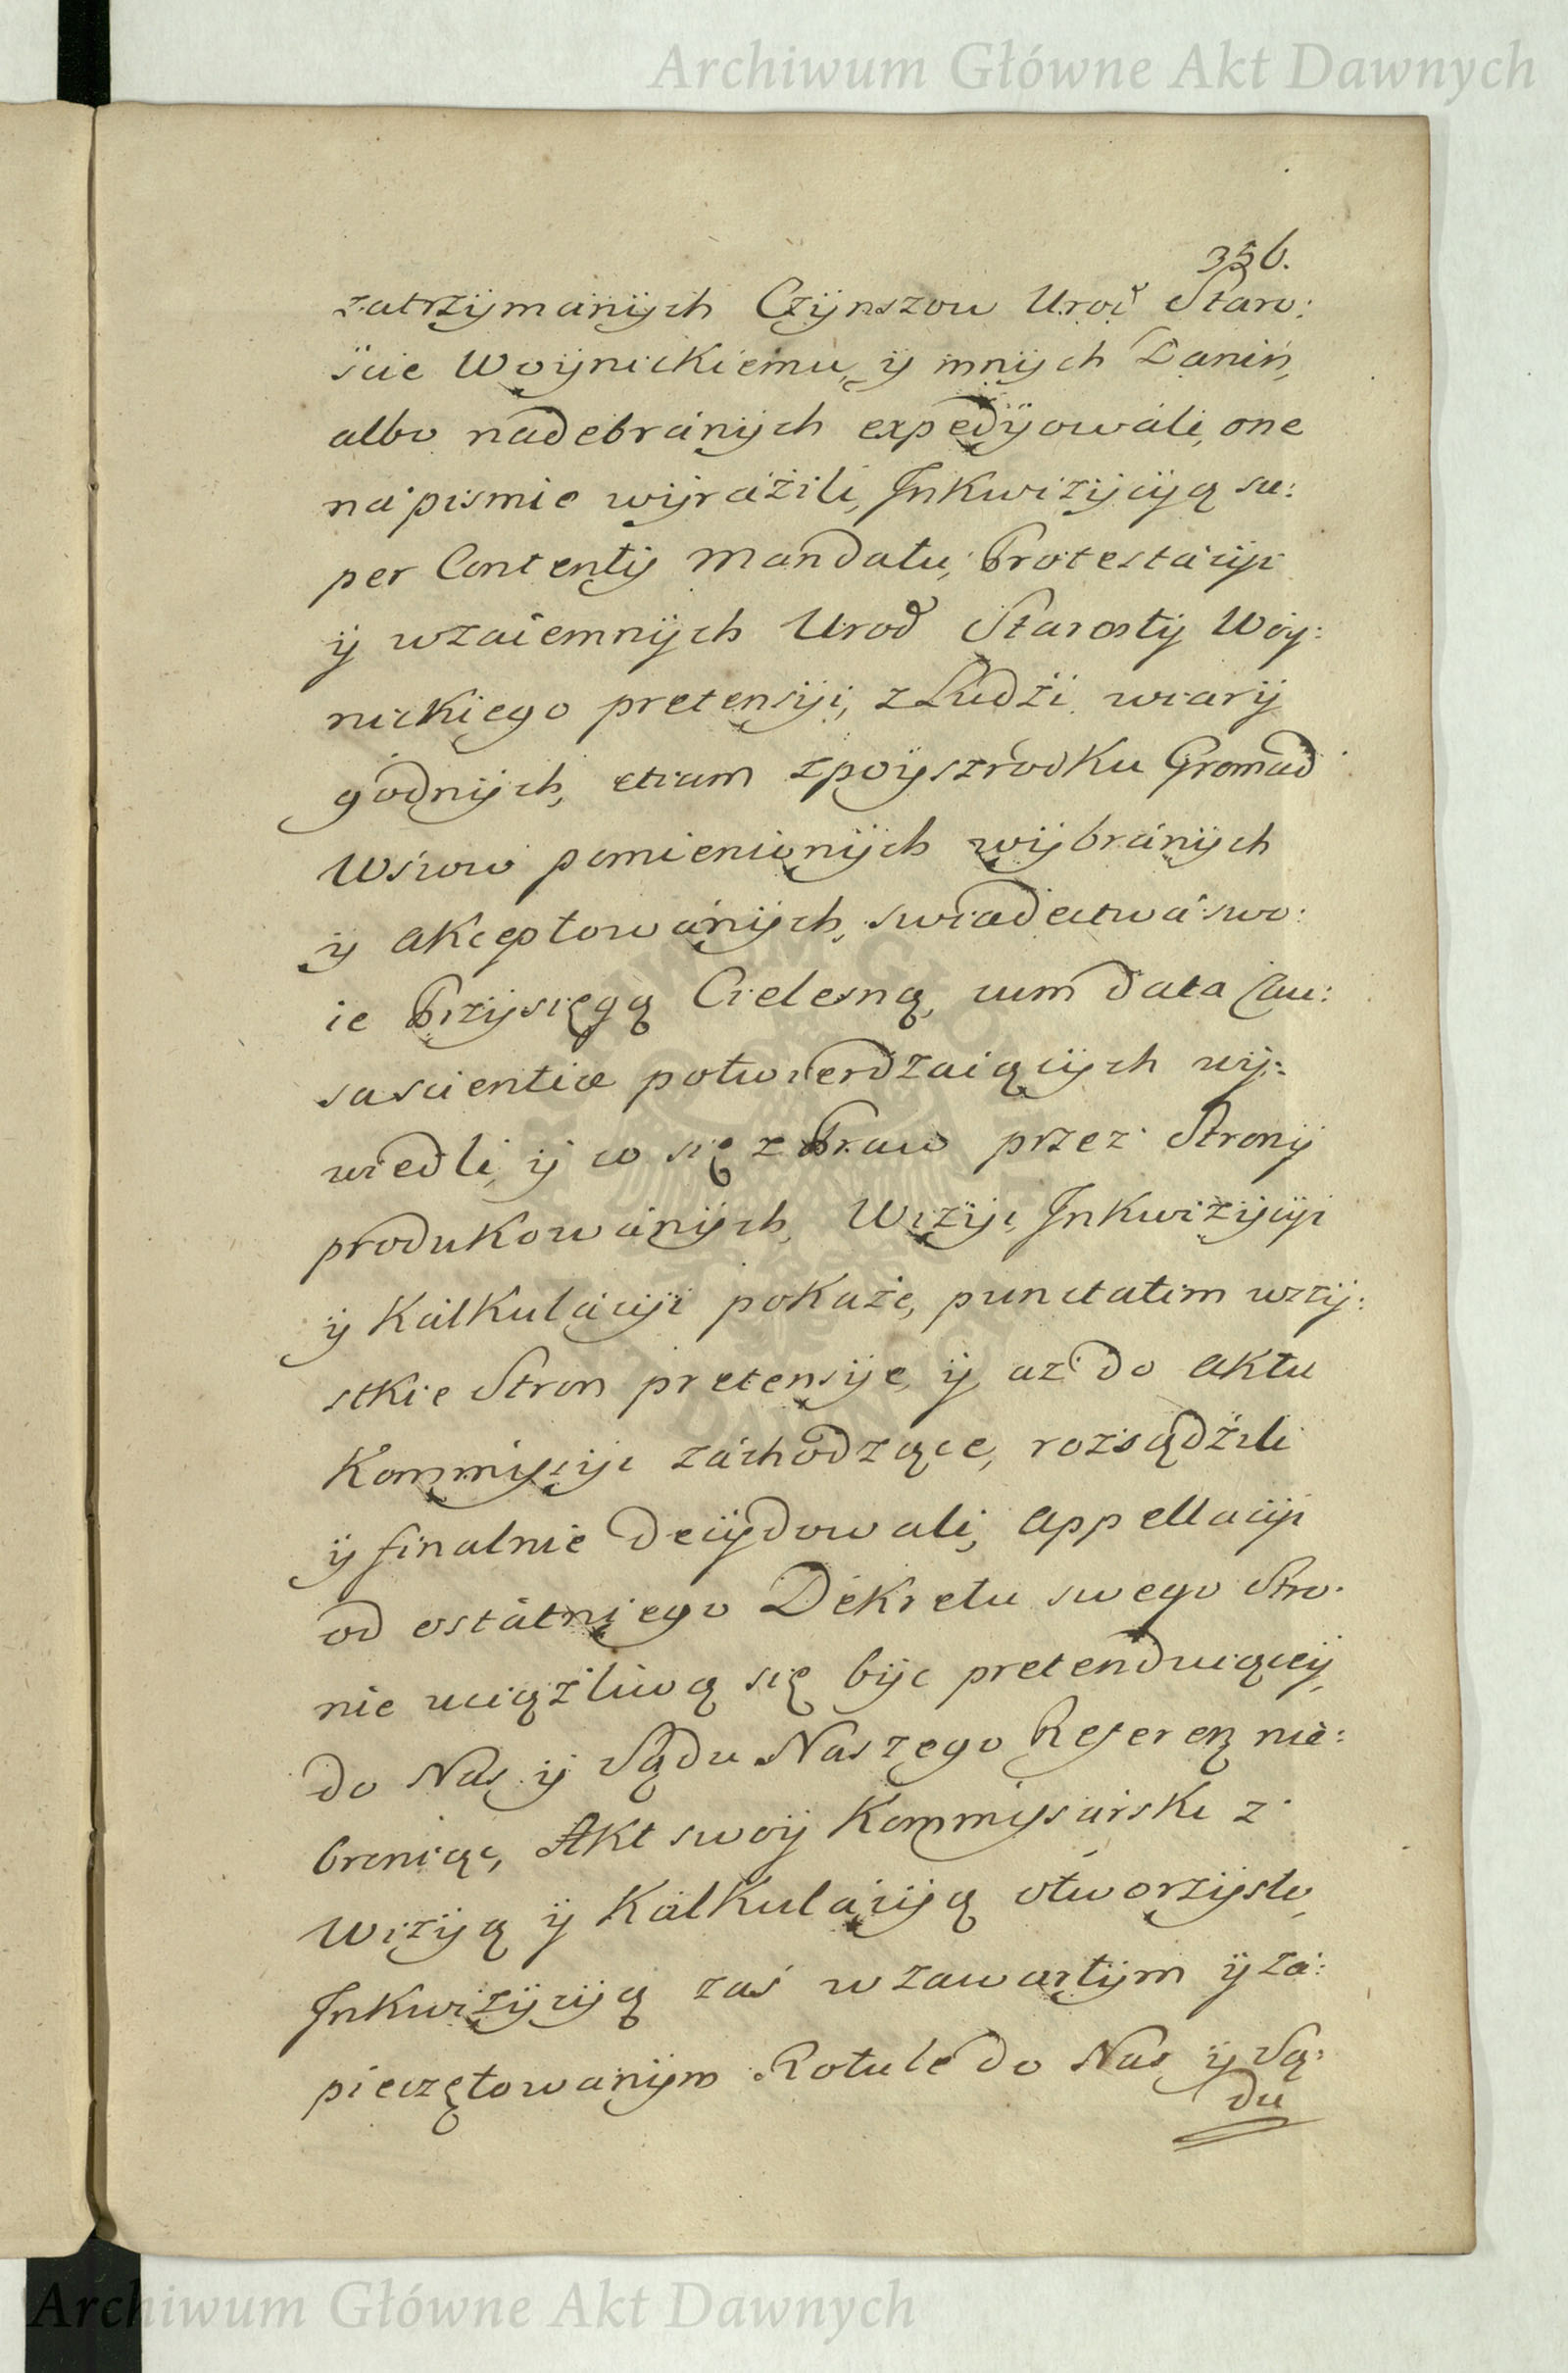 Archiwum Główne Akt Dawnych
356.
zatrzÿmánÿch Czÿnszow Urod Staro:
ście Woÿnickiemu, ÿ innÿch Danin,
albo nádebránÿch expedÿowáli, one
ná pismie wÿráźili, Inkwizÿcÿą su:
per Contentÿs Mandatu, Protestácÿi
ÿ wzaiemnÿch Urod Starostÿ Woÿ:
nickiego pretensÿi, z Ludźi wiarÿ
godnÿch, etiam zpoÿszrodku Gromad
Wsiow pomienionÿch wÿbránÿch
ÿ akceptowánÿch, swiadectwá swo:
ie Przÿsięgą Cielesną, cum data Cau:
sa scientiæ potwierdzaiącÿch wÿ:
wiedli, ÿ co się z Praw przez Stronÿ
produkowánÿch, Wizÿi, Inkwizÿcÿi
ÿ Kálkulácÿi pokaże, punctatim wszÿ:
stkie Stron pretensÿe, ÿ aż do aktu
Kommissÿi záchodzące, rozsądźili
ÿ finalnie decÿdowali, appellacÿi
od ostátniego Dekretu swego Stro:
nie uciążliwą się bÿc pretenduiąceÿ,
do Nas ÿ Sądu Naszego Referen nie:
broniąc, Akt swoÿ Kommissárski z
Wizÿą ÿ Kálkulácÿą otworzÿsto,
Inkwizÿcÿą zaś w zawartÿm ÿ zá:
pieczętowanÿm Rotule do Nas ÿ Są:
du
Archiwum Główne Akt Dawnych